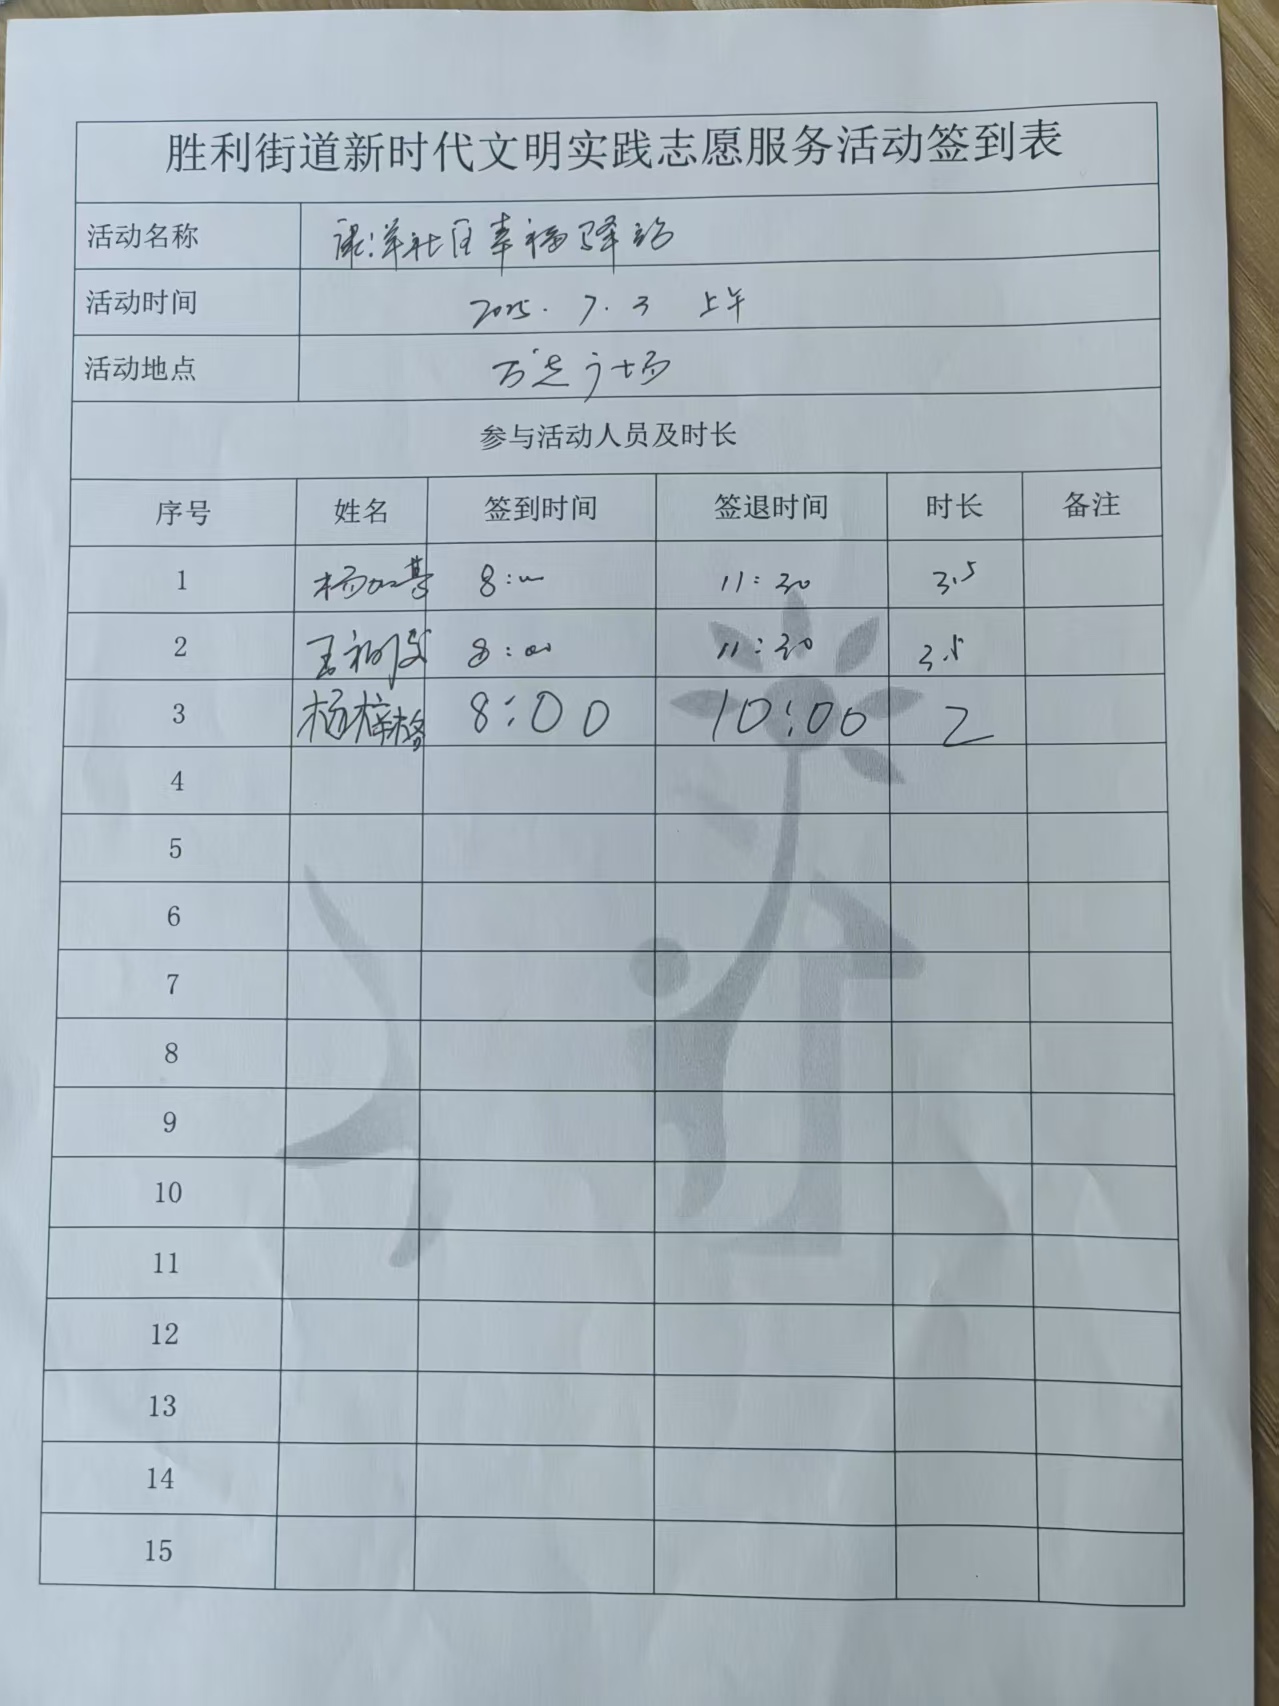 胜利街道新时代文明实践志愿服务活动签到表
活动名称 康洋社区幸福驿站
活动时间 2025. 7. 3 上午
活动地点 万达广场
参与活动人员及时长
序号 姓名 签到时间 签退时间 时长 备注
1 杨 8:00 11:30 3.5
2 王 8:00 11:30 3.5
3 杨梓格 8:00 10:00 2
4
5
6
7
8
9
10
11
12
13
14
15